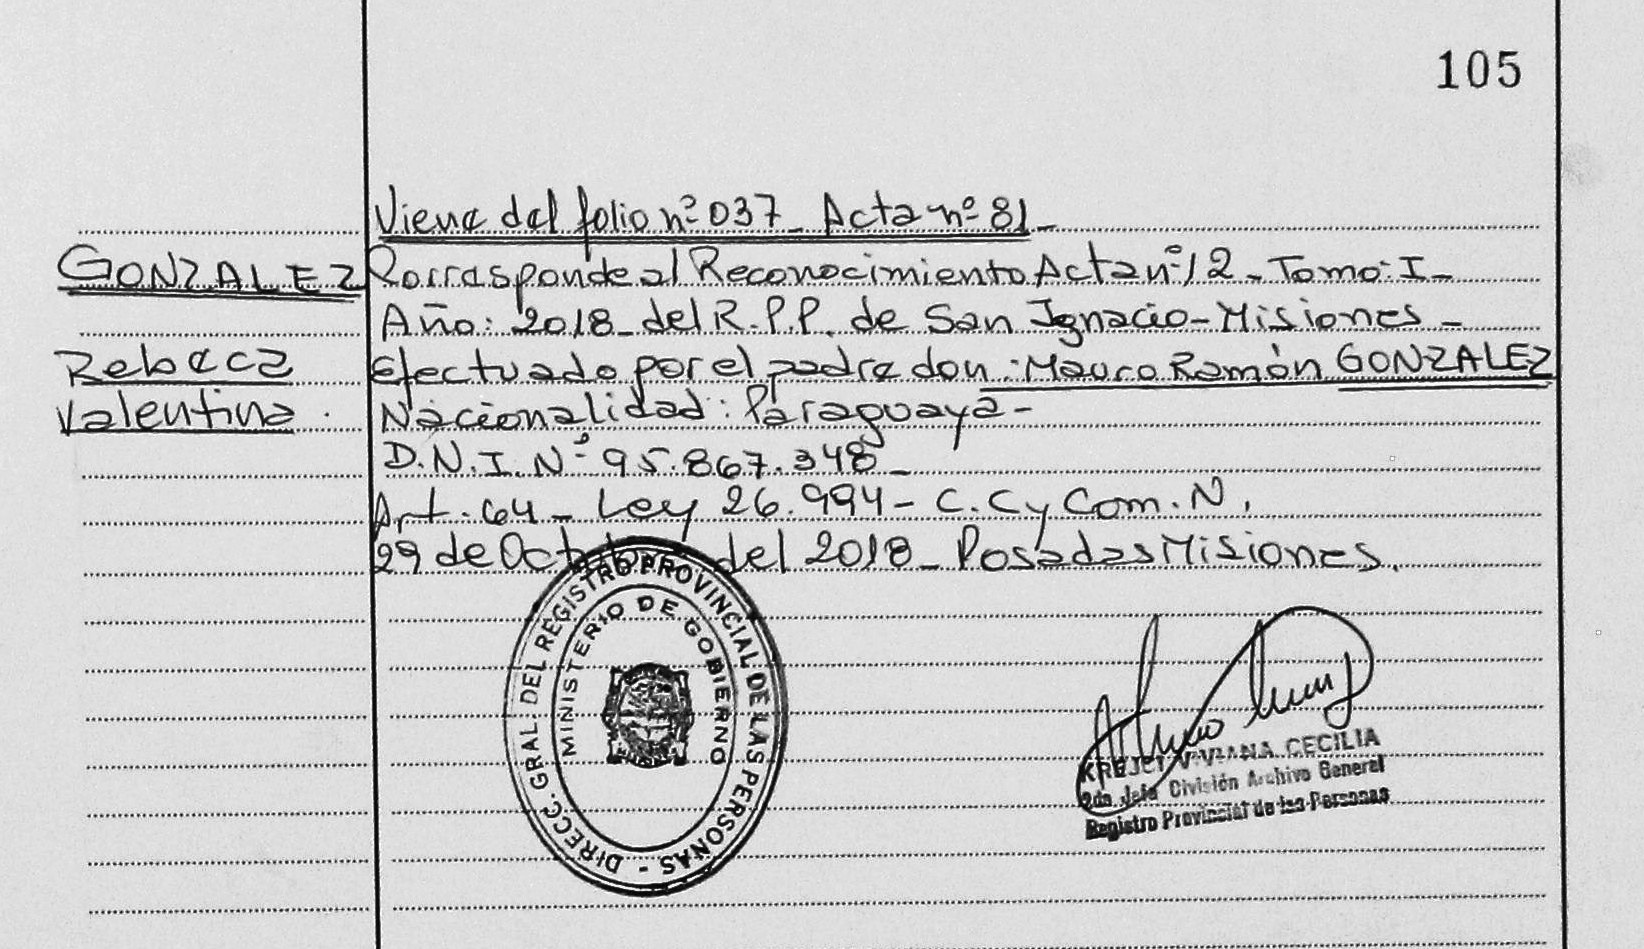 105
Viene del folio nº 037 - Acta nº 81 -
GONZALEZ
Corresponde al Reconocimiento Acta nº 12 - Tomo: I -
Año: 2018 - del R.P.P. de San Ignacio - Misiones -
Rebeca
efectuado por el padre don: Mauro Ramón GONZALEZ
Valentina.
Nacionalidad: Paraguaya -
D.N.I. Nº 95.867.348 -
Art. 64 - Ley 26.994 - C.C y Com. N.
29 de Octubre del 2018 - Posadas Misiones.
DIRECC. GRAL DEL REGISTRO PROVINCIAL DE LAS PERSONAS -
MINISTERIO DE GOBIERNO
KREJCI VIVIANA CECILIA
2da. Jefa División Archivo General
Registro Provincial de las Personas